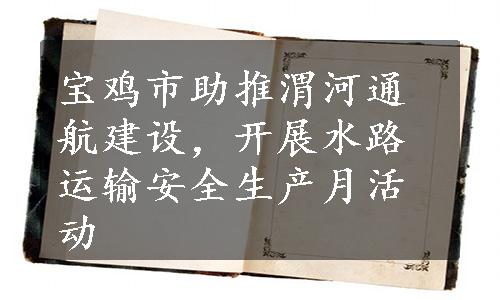 宝鸡市助推渭河通
航建设，开展水路
运输安全生产月活
动